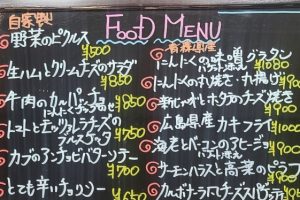 自家製
FOOD MENU
野菜のピクルス ¥500
生ハムとクリームチーズのサラダ ¥850
牛肉のカルパッチョ ¥850
トマトとモッツァレラチーズの ¥750
カプのアンチョビバターソテー ¥700
とても辛いチョリソー ¥650
青森県産
にんにくの味噌グラタン ¥1080
にんにくの丸焼き・丸揚げ ¥900
とホタテのチーズ焼き ¥900
広島県産カキフライ
海老とベーコンのアヒージョ
サーモンハラスと高菜のピラフ
カルボナーラ